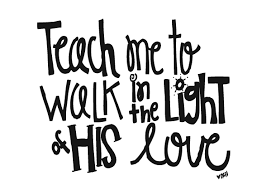 Teach me to
WALK in the LiGHT
of HIS love